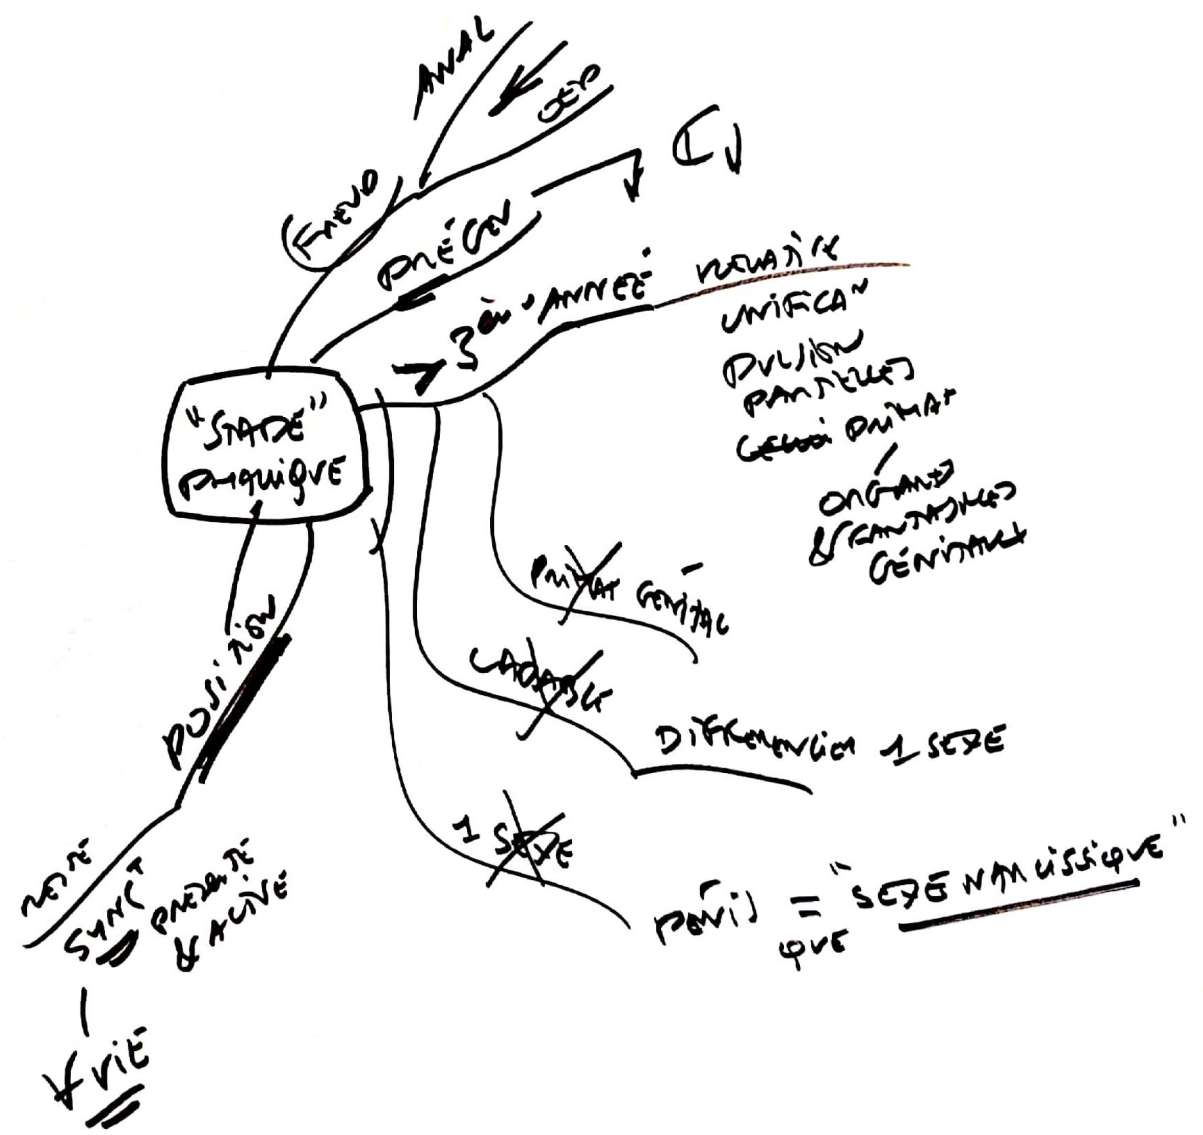 ANAL
OED
FREUD
PRÉGÉN
3ème ANNÉE
RELATIVE
UNIFICAN
PULSION
PARTIELLES
PRIMAT
ORGANES
& FANTASMES
GÉNITAUX
"STADE"
PHALLIQUE
PRIMAT GÉNITAL
DIFFÉRENCIER 1 SEXE
1 SEXE
PÉNIS = "SEXE NARCISSIQUE"
QUE
POSITION
RESTE
SYNCT
PRÉSENTE
& ACTIVE
∀ VIE